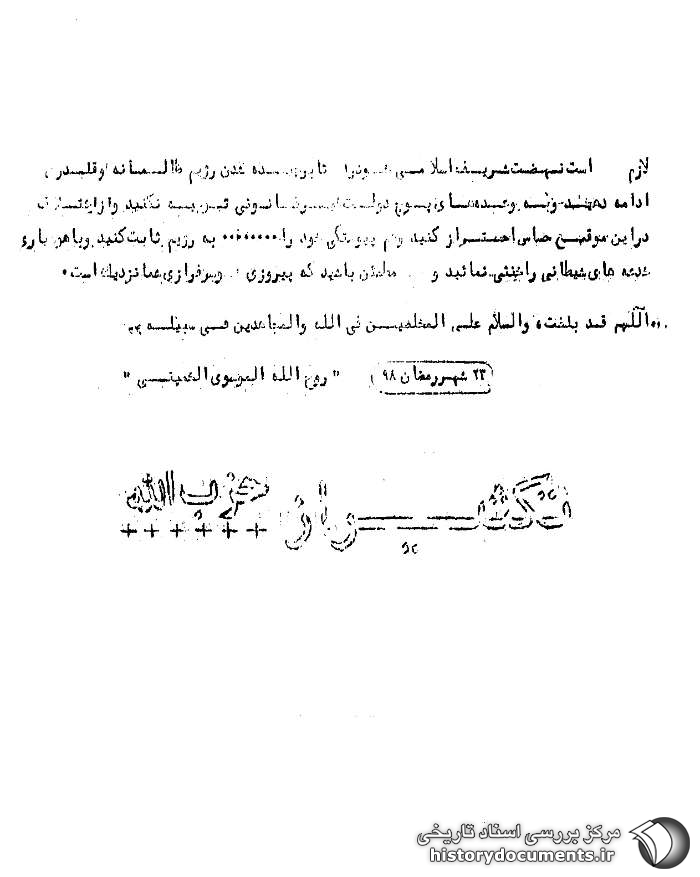 لازم است نهضت شریف اسلامی خود را تا برچیده شدن رژیم ظالمانه و قلدری
ادامه دهند و به وعده های پوچ دولت غیر قانونی توجه نکنید و از اختلاف
در این موقع حساس احتراز کنید و پیوستگی خود را ........ به رژیم ثابت کنید و با هوشیاری
خدعه های شیطانی را خنثی نمائید و مطمئن باشید که پیروزی و سرفرازی شما نزدیک است.
...اللّهم قد بلغت، والسلام علی المخلصین فی الله والمجاهدین فی سبیله
۲۳ شهر رمضان ۹۸ "روح الله الموسوی الخمینی"
تکثیر از حزب الله
+ + + + + +
مرکز بررسی اسناد تاریخی
historydocuments.ir